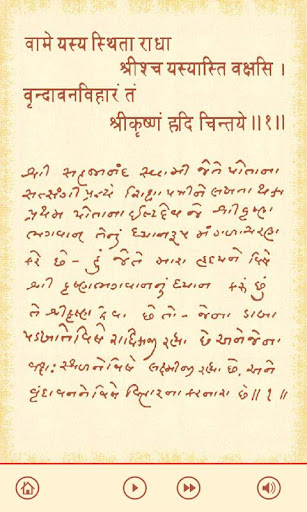 वामे यस्य स्थिता राधा
श्रीश्च यस्यास्ति वक्षसि ।
वृन्दावनविहारं तं
श्रीकृष्णं हृदि चिन्तये ॥१॥
શ્રી સહજાનંદ સ્વામી જેતે પોતાના
સત્સંગી પ્રત્યે શિક્ષા પત્રીને લખતા થકા
પ્રથમ પોતાના ઈષ્ટદેવ જે શ્રી કૃષ્ણ
ભગવાન તેનું ધ્યાનરૂપ મંગળાચરણ
કરે છે - હું જેતે મારા હૃદયને વિષે
શ્રી કૃષ્ણભગવાનનું ધ્યાન કરું છું
તે શ્રીકૃષ્ણ કેવા છે તો - જેના ડાબા
પડખાને વિષે રાધિકાજી રહ્યાં છે અને જેના
વક્ષ:સ્થળને વિષે લક્ષ્મીજી રહ્યાં છે, અને
વૃંદાવનને વિષે વિહારના કરનારા છે ॥૧॥